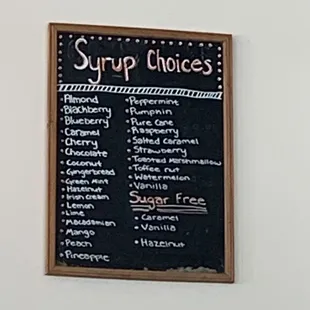 Syrup Choices
• Almond
• Blackberry
• Blueberry
• Caramel
• Cherry
• Chocolate
• Coconut
• Gingerbread
• Green Mint
• Hazelnut
• Irish Cream
• Lemon
• Lime
• Macadamian
• Mango
• Peach
• Pineapple
• Peppermint
• Pumpkin
• Pure Cane
• Raspberry
• Salted Caramel
• Strawberry
• Toasted Marshmallow
• Toffee nut
• Watermelon
• Vanilla
Sugar Free
• Caramel
• Vanilla
• Hazelnut